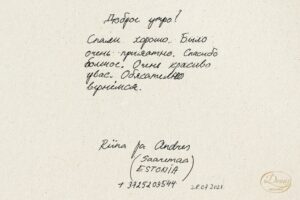 Доброе утро!
Спали хорошо. Было
очень приятно. Спасибо
большое. Очень красиво
у вас. Обязательно
вернёмся.
Riina ja Andres
(Saaremaa)
ESTONIA
+3725203544
28.07.2021